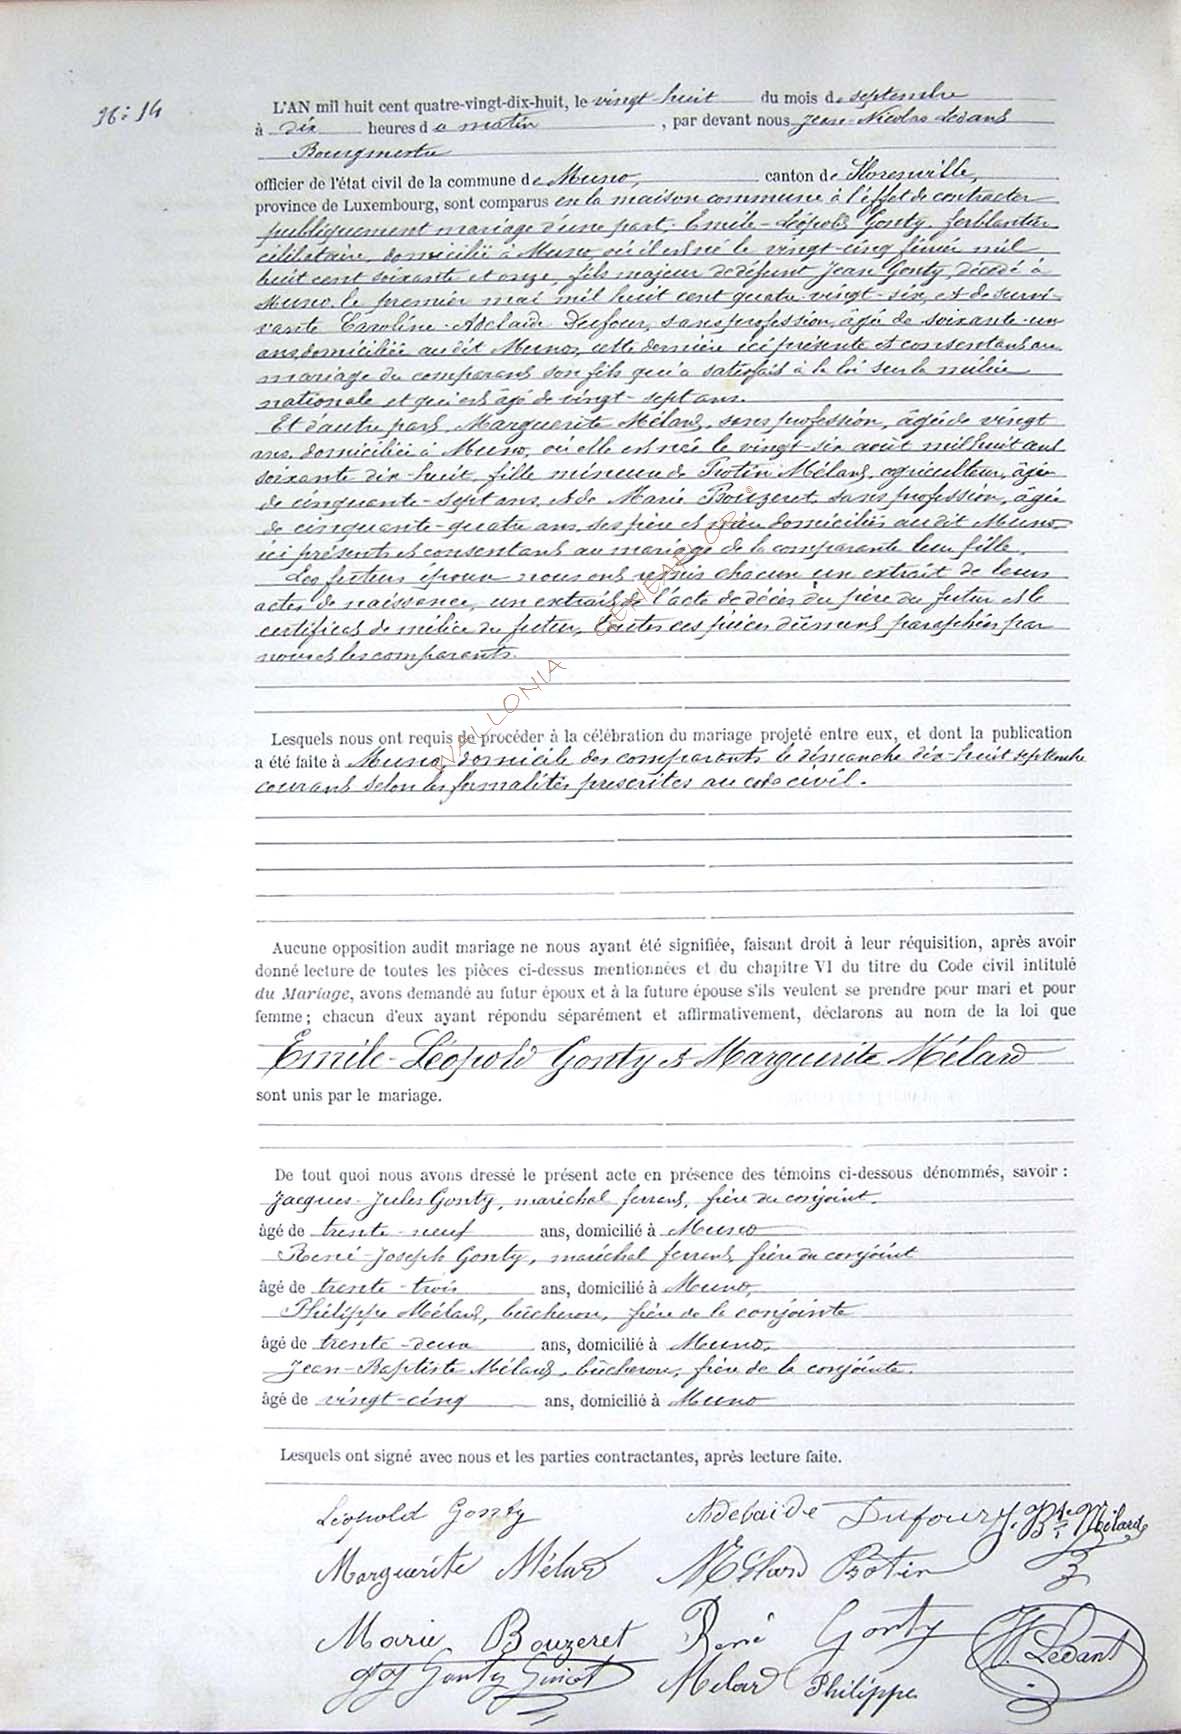 N° 14
L'AN mil huit cent quatre-vingt-dix-huit, le vingt-huit du mois de septembre
à dix heures du matin, par devant nous Jean-Nicolas Ledant
Bourgmestre
officier de l'état civil de la commune de Muno, canton de Florenville,
province de Luxembourg, sont comparus en la maison commune à l'effet de contracter
publiquement mariage d'une part, Emile-Léopold Gonty, ferblantier
célibataire, domicilié à Muno, où il est né le vingt-cinq février mil
huit cent soixante et onze, fils majeur de défunt Jean Gonty, décédé à
Muno le premier mai mil huit cent quatre-vingt-six, et de survi-
vante Caroline-Adelaïde Dufour, sans profession, âgée de soixante-un
ans, domiciliée audit Muno, cette dernière ici présente et consentant au
mariage du comparant son fils qui a satisfait à la loi sur la milice
nationale et qui est âgé de vingt-sept ans.
Et d'autre part, Marguerite Mélard, sans profession, âgée de vingt
ans, domiciliée à Muno, où elle est née le vingt-six août mil huit cent
soixante dix-huit, fille mineure de Potin Mélard, agriculteur, âgé
de cinquante-sept ans, et de Marie Bouzeret, sans profession, âgée
de cinquante-quatre ans, ses père et mère domiciliés audit Muno,
ici présents et consentant au mariage de la comparante leur fille.
Les futurs époux nous ont remis chacun un extrait de leurs
actes de naissance, un extrait de l'acte de décès du père du futur et le
certificat de milice du futur, toutes ces pièces dûment paraphées par
nous et les comparants.
Lesquels nous ont requis de procéder à la célébration du mariage projeté entre eux, et dont la publication
a été faite à Muno, domicile des comparants le dimanche dix-huit septembre
courant selon les formalités prescrites au code civil.
Aucune opposition audit mariage ne nous ayant été signifiée, faisant droit à leur réquisition, après avoir
donné lecture de toutes les pièces ci-dessus mentionnées et du chapitre VI du titre du Code civil intitulé
du Mariage, avons demandé au futur époux et à la future épouse s'ils veulent se prendre pour mari et pour
femme ; chacun d'eux ayant répondu séparément et affirmativement, déclarons au nom de la loi que
Emile-Léopold Gonty et Marguerite Mélard
sont unis par le mariage.
De tout quoi nous avons dressé le présent acte en présence des témoins ci-dessous dénommés, savoir :
Jacques-Jules Gonty, maréchal ferrant, frère du conjoint.
âgé de trente-neuf ans, domicilié à Muno
René-Joseph Gonty, maréchal ferrant, frère du conjoint
âgé de trente-trois ans, domicilié à Muno,
Philippe Mélard, bûcheron, frère de la conjointe
âgé de trente-deux ans, domicilié à Muno,
Jean-Baptiste Mélard, bûcheron, frère de la conjointe.
âgé de vingt-cinq ans, domicilié à Muno
Lesquels ont signé avec nous et les parties contractantes, après lecture faite.
Léopold Gonty Adelaide Dufour J. Bte Mélard
Marguerite Mélard Mélard Potin
Marie Bouzeret René Gonty N. Ledant
Gonty Melard Philippe
WALLONIA GENEAFLOR ©